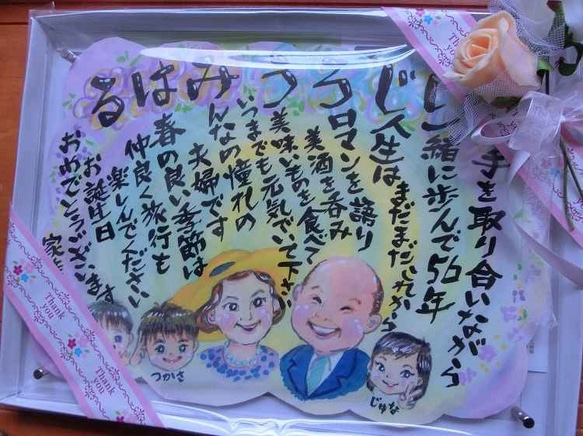 手を取り合いながら
一緒に歩んで50年
じ人生は
まだまだこれから
ロマンを語り
美酒を呑み
美味いものを食べて
いつまでも元気でいて下さい
みんなの憧れの
夫婦です
は春の良い季節は
仲良く旅行も
る楽しんでください
お誕生日
おめでとうございます
つかさ
じゅな
Thank you
Thank you
Thank you